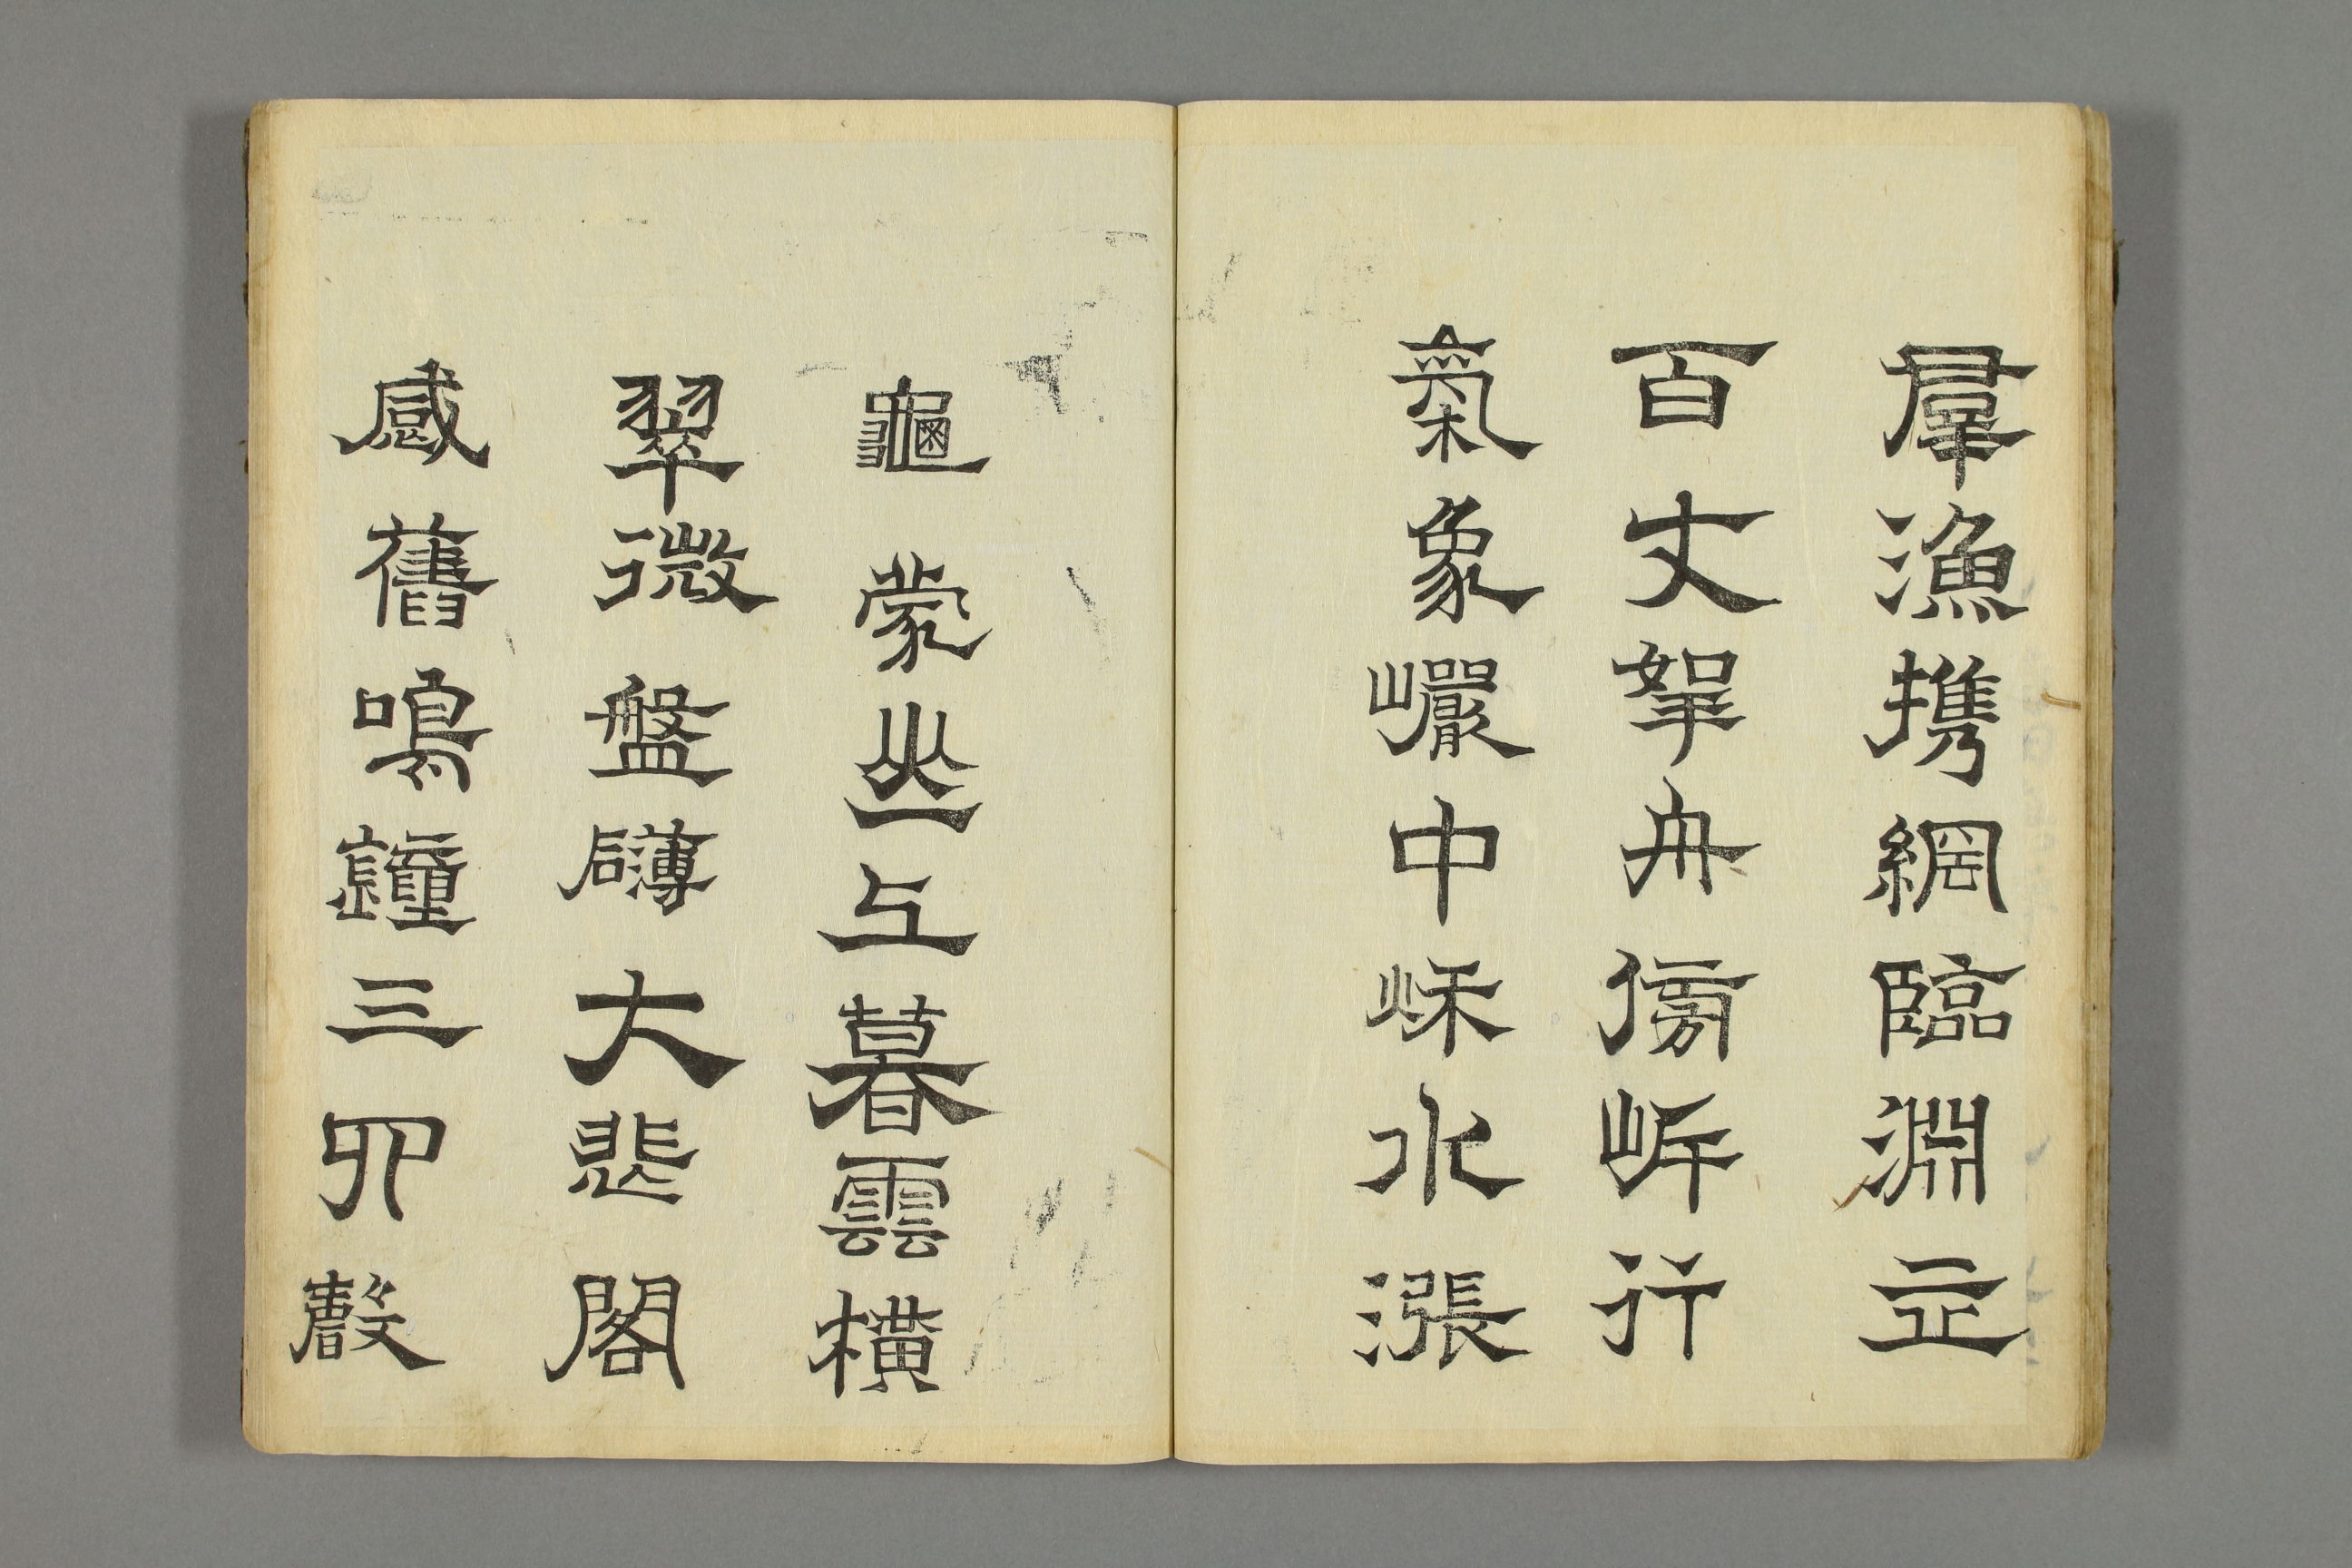 羣漁携網臨淵立
百丈挐舟傍岸行
氣象巖中秋水漲
龜蒙山上暮雲橫
翠微盤礴大悲閣
感舊鳴鐘三四聲